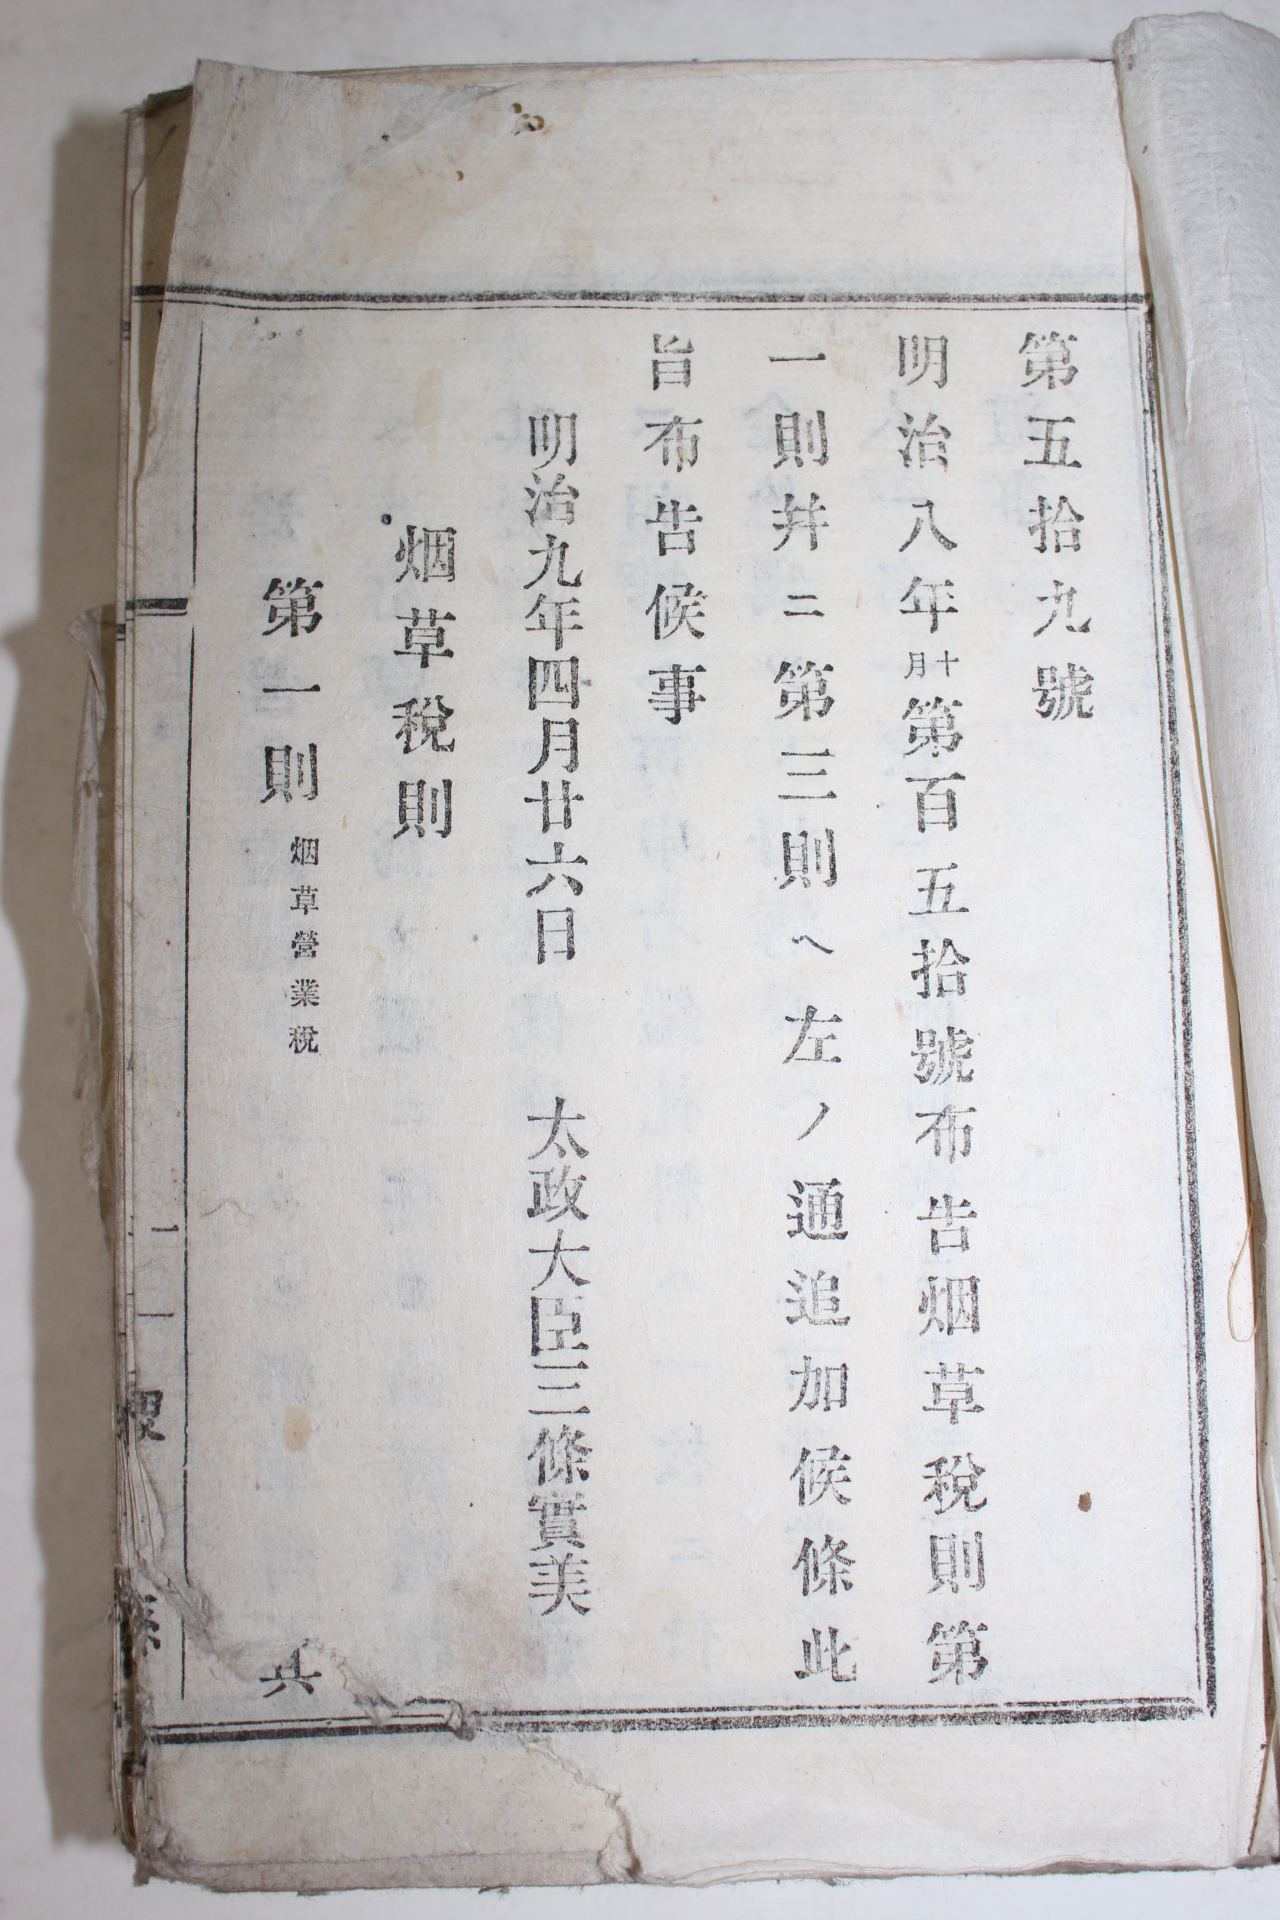 第五拾九號
明治八年十月第百五拾號布告烟草稅則第
一則幷ニ第三則ヘ左ノ通追加候條此
旨布告候事
明治九年四月廿六日 太政大臣三條實美
烟草稅則
第一則 烟草營業稅